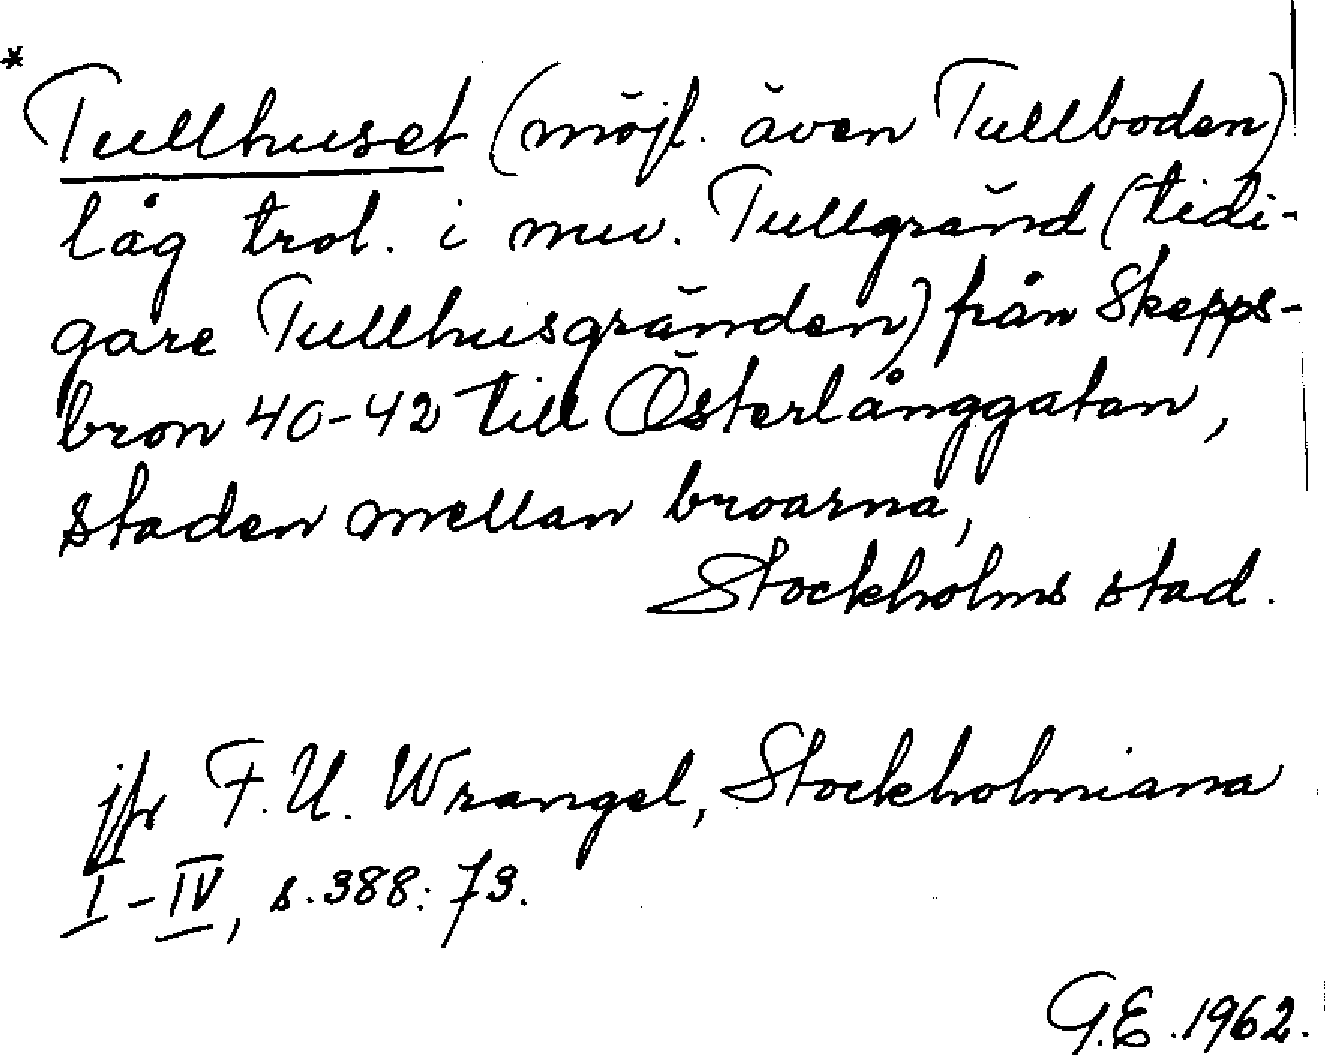 * Tullhuset (möjl. även Tullboden)
låg trol. i nuv. Tullgränd (tidi-
gare Tullhusgränden) från Skepps-
bron 40-42 till Österlånggatan,
staden mellan broarna,
Stockholms stad.
jfr F. U. Wrangel, Stockholmiana
I-IV, s. 388: 73.
G.E. 1962.